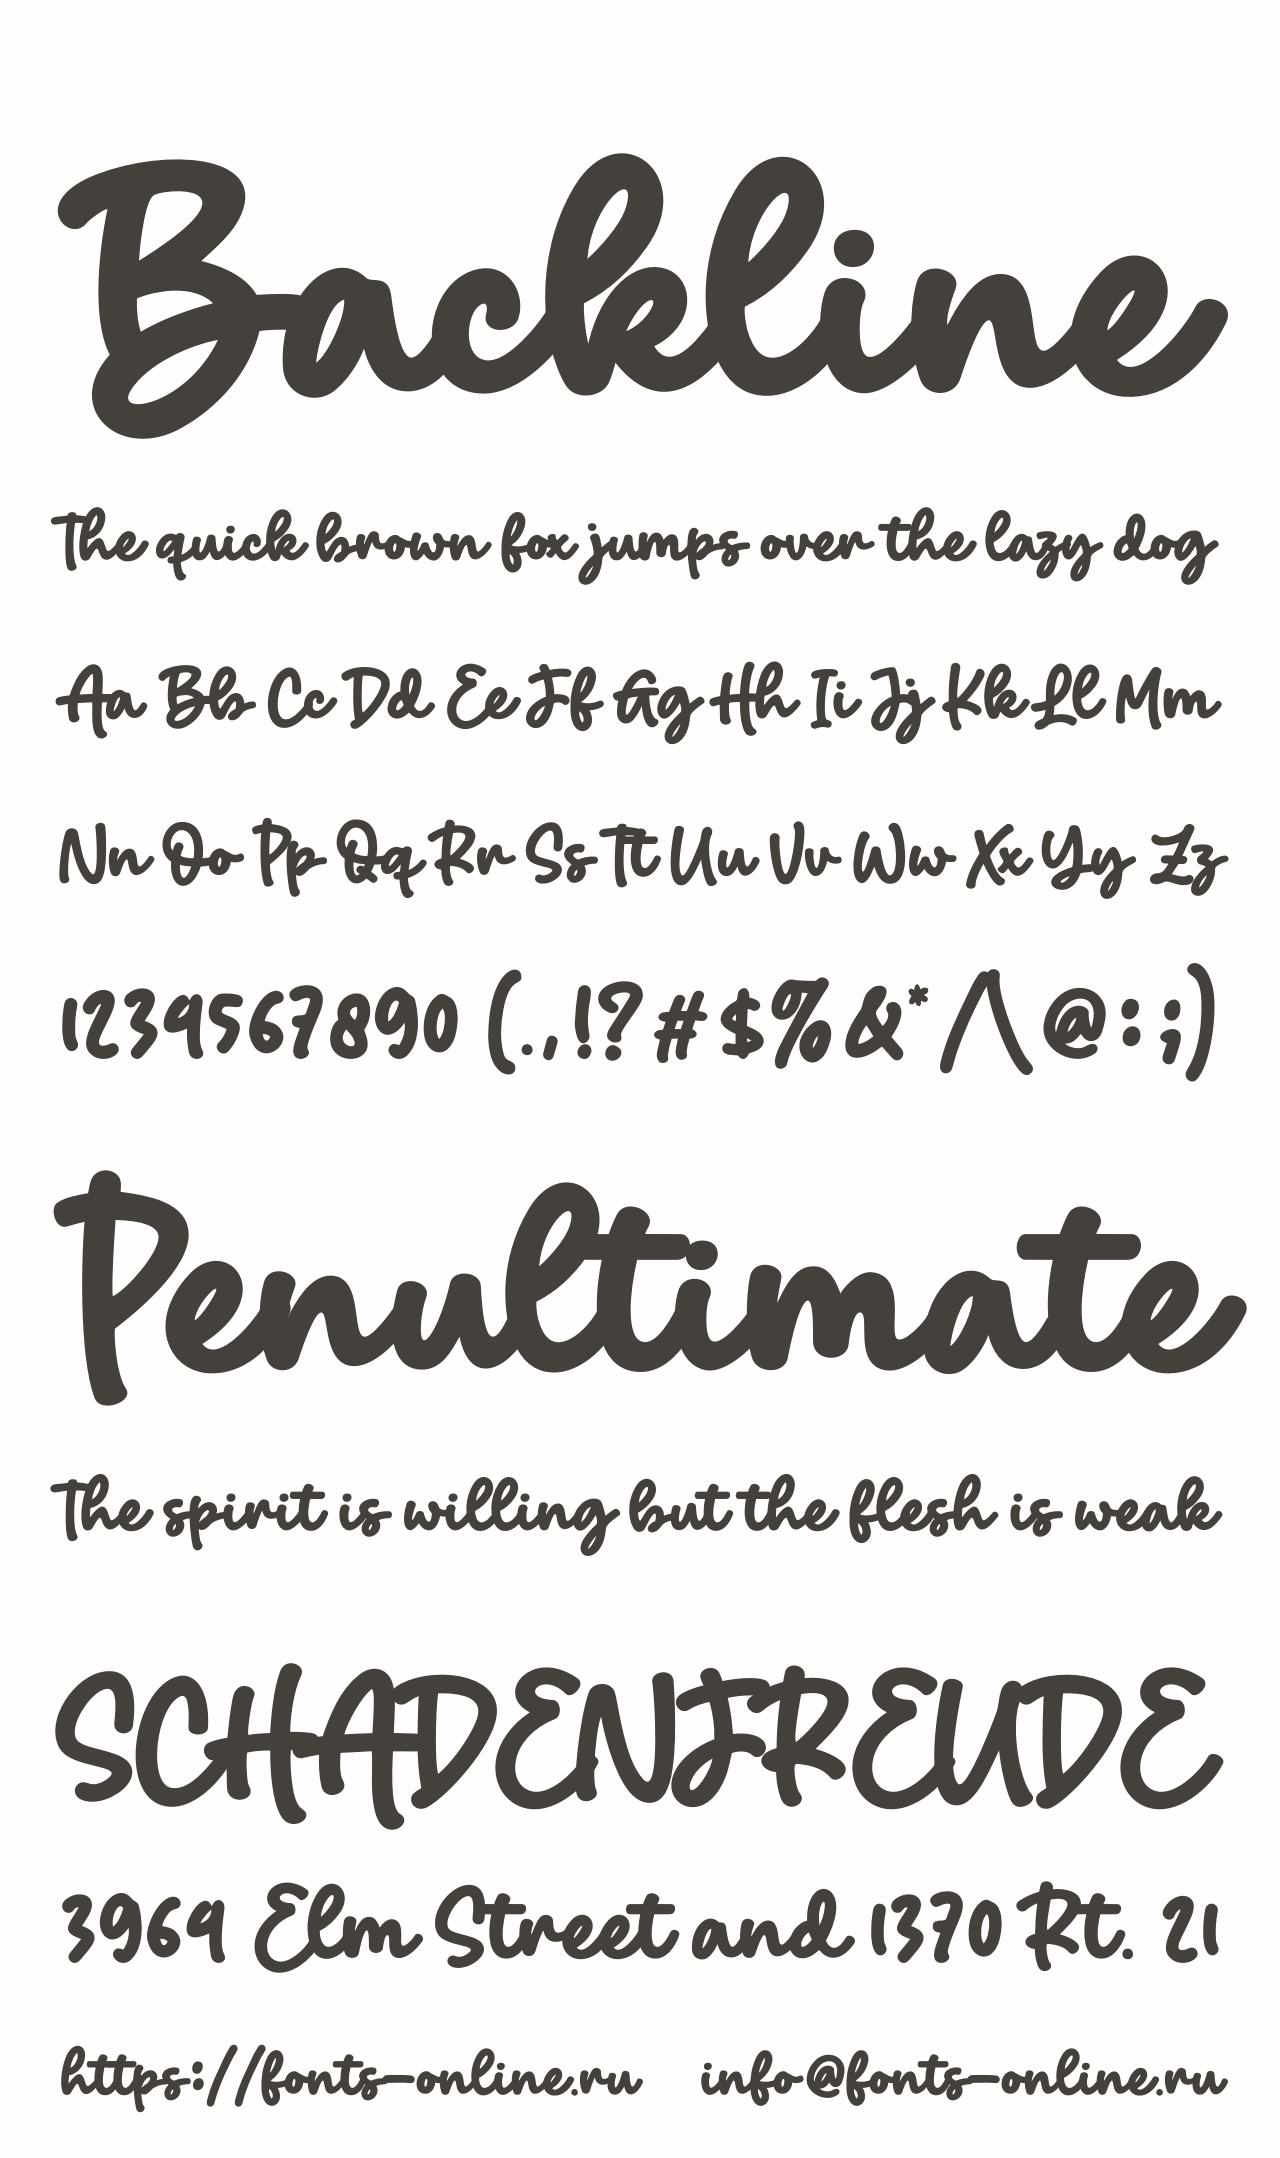 Backline
The quick brown fox jumps over the lazy dog
Aa Bb Cc Dd Ee Ff Gg Hh Ii Jj Kk Ll Mm
Nn Oo Pp Qq Rr Ss Tt Uu Vv Ww Xx Yy Zz
1234567890 (.,!?#$%&*/\@:;)
Penultimate
The spirit is willing but the flesh is weak
SCHADENFREUDE
3964 Elm Street and 1370 Rt. 21
https://fonts-online.ru info@fonts-online.ru